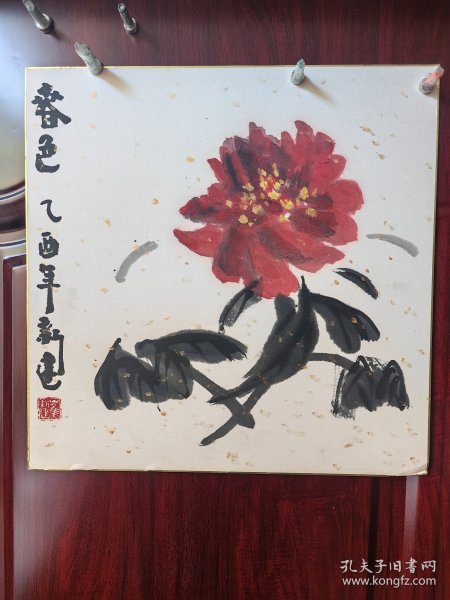 春色 乙酉年新建
孔夫子旧书网
www.kongfz.com